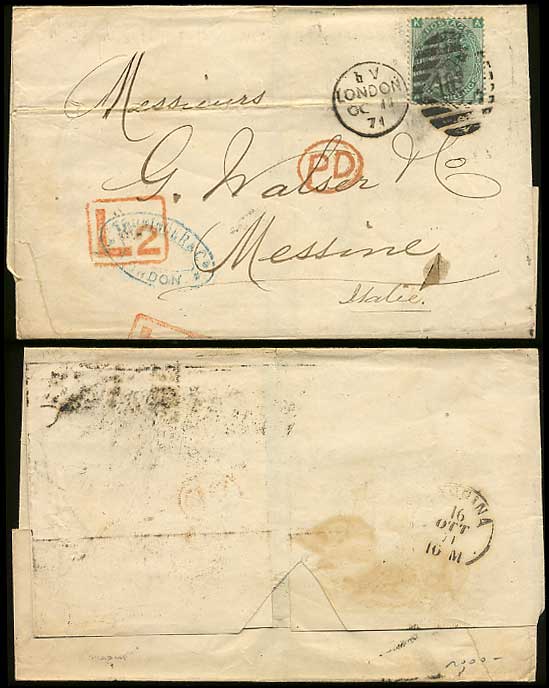 Messieurs
G. Walser & Co
Messine
Italie.
LONDON
OC 11
71
PD
L2
LONDON
POSTAGE
16
OTT
71
10 M